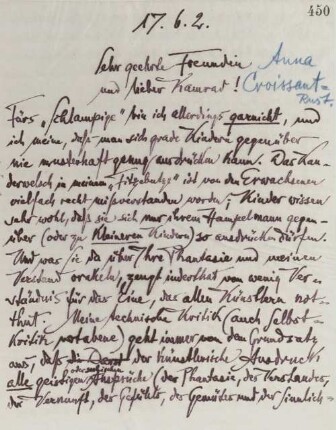 450
17. 6. 2.
Sehr geehrte Freundin
und lieber Kamrad!
Anna
Croissant-
Rust.
Fürs „Schlampige" bin ich allerdings garnicht, und
ich meine, daß man sich grade Kindern gegenüber
nie musterhaft genug ausdrücken kann. Das Kau-
derwelsch in meinem „Fitzebutze" ist von den Erwachsenen
vielfach recht mißverstanden worden; Kinder wissen
sehr wohl, daß sie sich nur ihrem Hampelmann gegen-
über (oder zu kleineren Kindern) so ausdrücken dürfen.
Und was Sie da über Ihre Phantasie und meinen
Verstand orakeln, zeugt inderthat von wenig Ver-
ständnis für das Eine, das allen Künstlern not-
thut. Meine technische Kritik (auch Selbst-
Kritik notabene) geht immer von dem Grundsatz
aus, daß der künstlerische Ausdruck
alle geistigen oder seelischen Ansprüche (der Phantasie, des Verstandes,
der Vernunft, des Gefühls, des Gemütes und der Sinnlich-